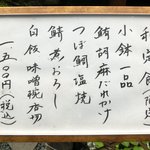 和定食
小鉢一品
鯖胡麻だれかけ
つぼ鯛塩焼
鯖煮おろし
白飯 味噌椀 香物
一、五〇〇円(税込)